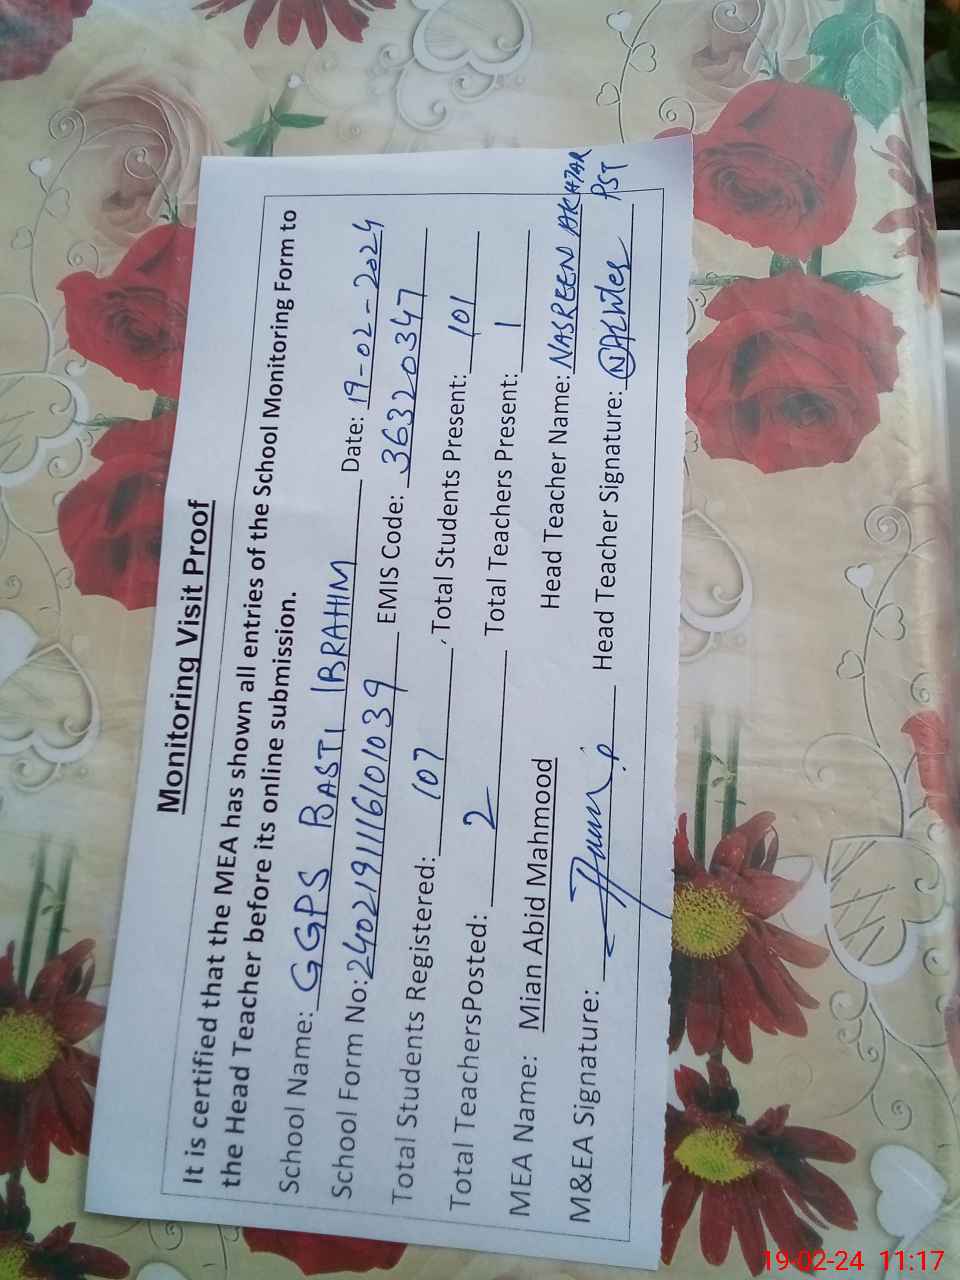 Monitoring Visit Proof
It is certified that the MEA has shown all entries of the School Monitoring Form to
the Head Teacher before its online submission.
School Name: GGPS BASTI IBRAHIM Date: 19-02-2024
School Form No: 24021911116101039 EMIS Code: 36320347
Total Students Registered: 107, Total Students Present: 101
Total TeachersPosted: 2 Total Teachers Present: 1
MEA Name: Mian Abid Mahmood Head Teacher Name: NASREEN AKHTAR
PST
M&EA Signature: Head Teacher Signature: N Akhter
19-02-24 11:17